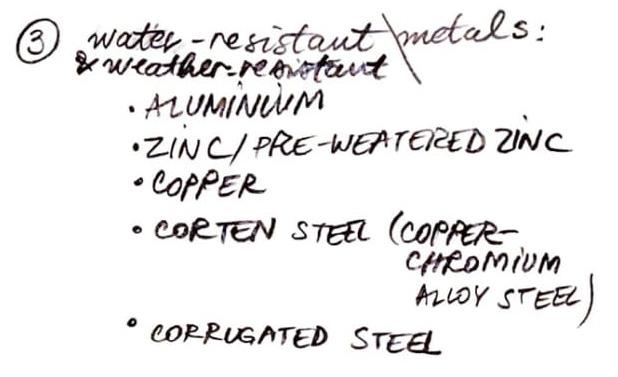 ③ water-resistant metals:
& weather-resistant
• ALUMINIUM
• ZINC/PRE-WEATERED ZINC
• COPPER
• CORTEN STEEL (COPPER-
CHROMIUM
ALLOY STEEL)
• CORRUGATED STEEL